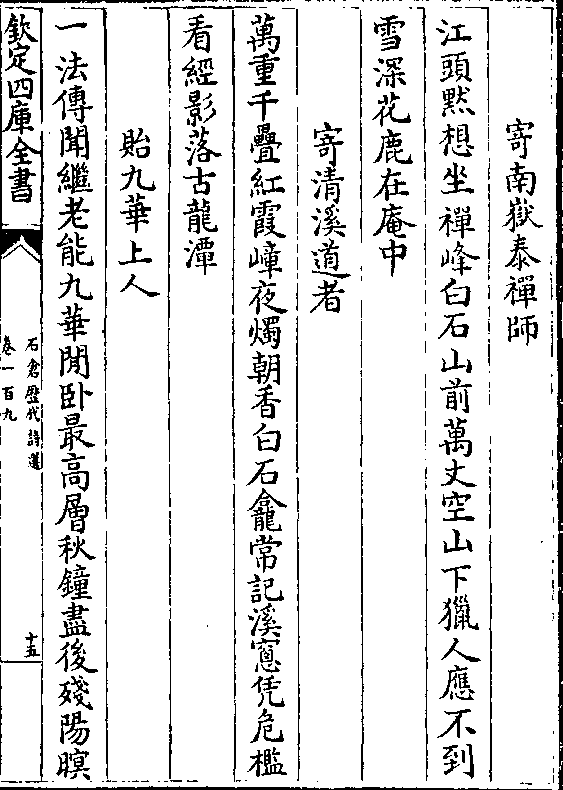 寄南嶽泰禪師
江頭黙想坐禪峰白石山前萬丈空山下獵人應不到
雪深花鹿在庵中
寄清溪道者
萬重千疊紅霞嶂夜燭朝香白石龕常記溪窻凭危檻
看經影落古龍潭
貽九華上人
一法傳聞繼老能九華閒卧最高層秋鐘盡後殘陽暝
欽定四庫全書
石倉歴代詩選
卷一百九
十五